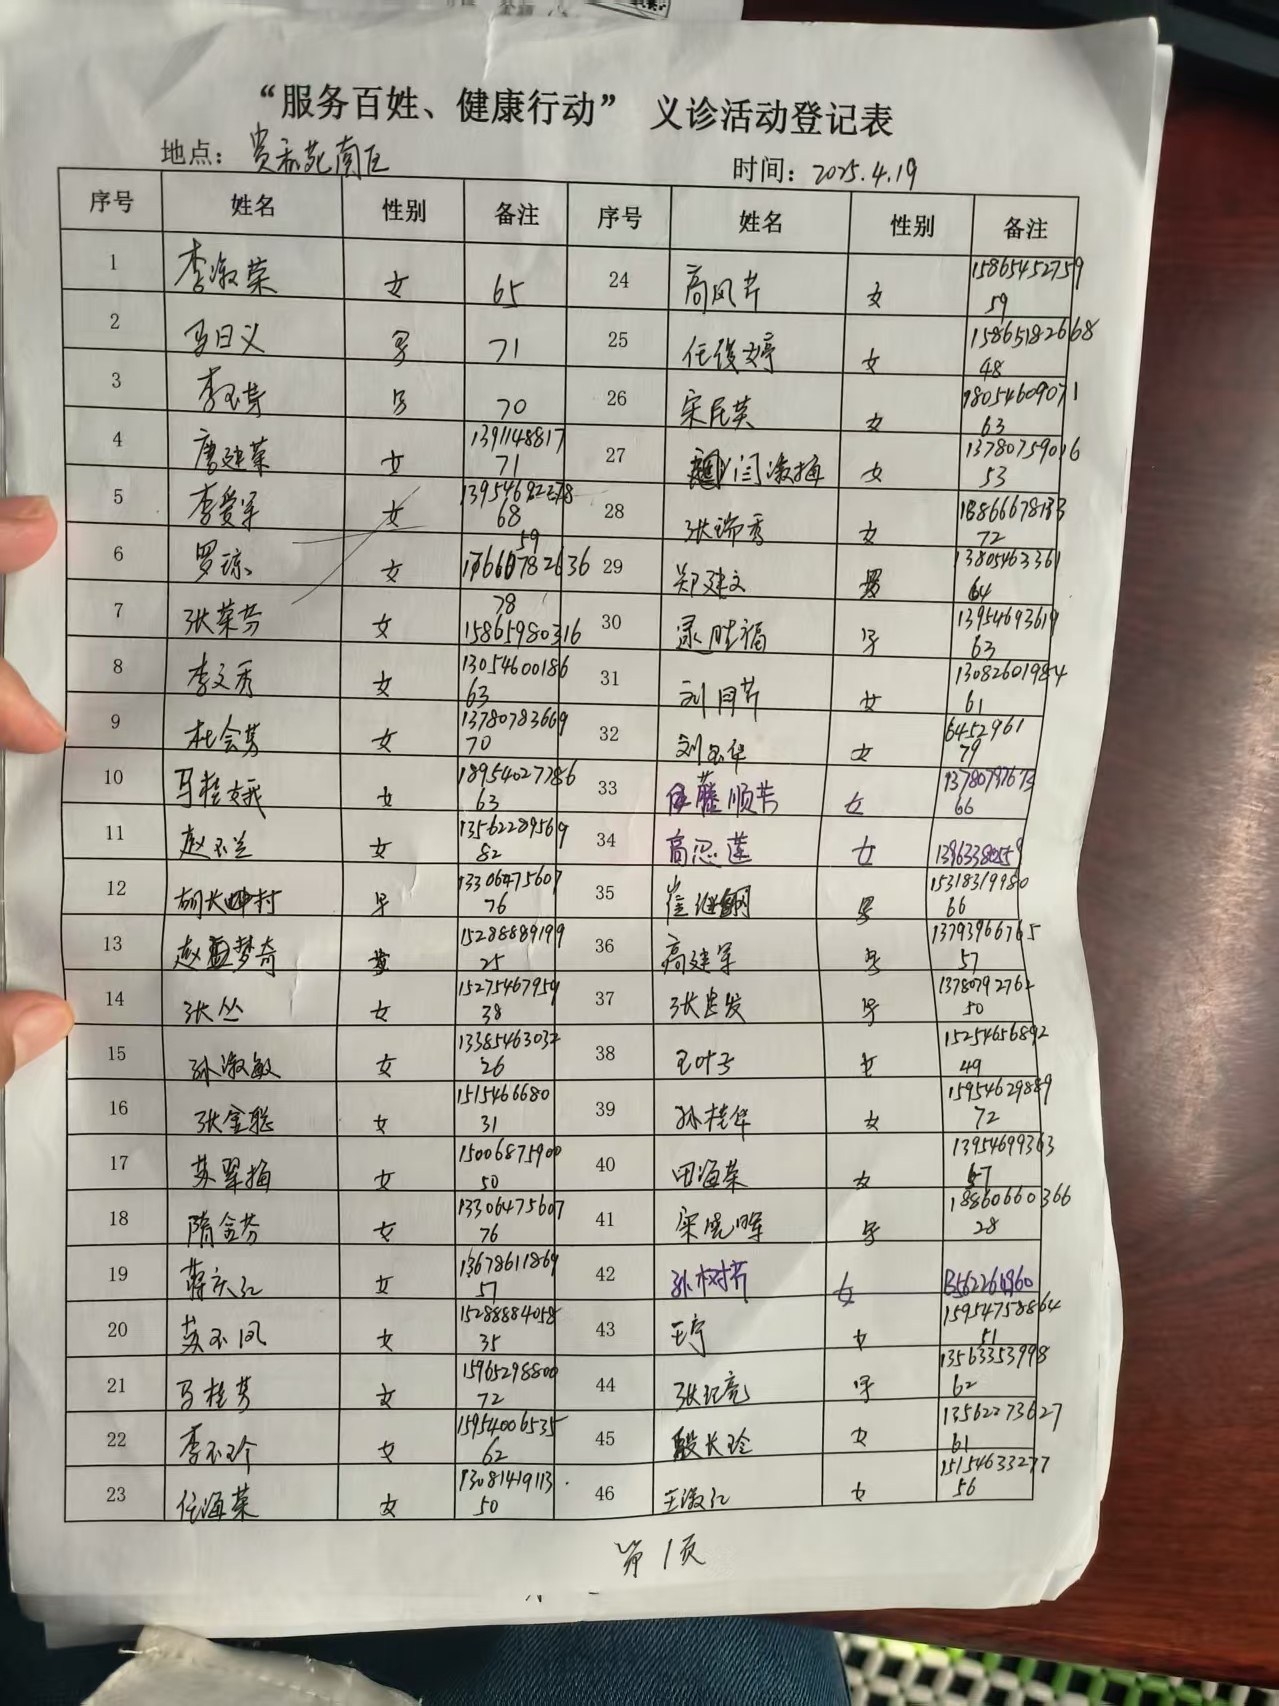 “服务百姓、健康行动” 义诊活动登记表
地点：贵和苑南区 时间：2025.4.19
序号 姓名 性别 备注 序号 姓名 性别 备注
1 李淑荣 女 65 24 高凤芹 女 15865452759 59
2 马日义 男 71 25 任俊婷 女 15865182668 48
3 李玉芳 男 70 26 宋民英 女 18054609071 63
4 唐建荣 女 1391148817 71 27 闫淑梅 女 13780759016 53
5 李爱军 女 68 28 张瑞秀 女 72
6 罗琼 女 59 29 郑建文 男 13805463361 64
7 张荣芬 女 78 15865980316 30 胜福 男 13954693619 63
8 李文秀 女 13054600186 63 31 刘同芹 女 13082601984 61
9 杜会芳 女 13780783669 70 32 刘玉华 女 6452961 79
10 马桂娥 女 18954027786 63 33 藤顺芳 女 66
11 赵玉兰 女 13562289569 82 34 高思莲 女
12 胡长村 男 13306475607 76 35 崔继钢 男 15318319980 66
13 赵梦奇 15288889199 25 36 高建军 男 13793966765 57
14 张丛 女 15275467959 38 37 张忠发 男 13780792762 50
15 孙淑敏 女 13385463032 26 38 王叶子 女 15254656892 49
16 张金聪 女 1515466680 31 39 孙桂华 女 15954629889 72
17 苏翠梅 女 15006875900 50 40 田海荣 女 13954699363 57
18 隋金芬 女 13306475607 76 41 宋晓晖 男 18860660366 28
19 蒋庆红 女 13678611869 57 42 孙树芹 女
20 苏玉凤 女 15288884058 35 43 王宁 女 15954758864 51
21 马桂芳 女 15965298800 72 44 张纪亮 男 13563353998 62
22 李玉珍 女 15954006535 62 45 殷长玲 女 13562273627 61
23 任海荣 女 13081419113 50 46 王淑红 女 15154633277 56
第1页